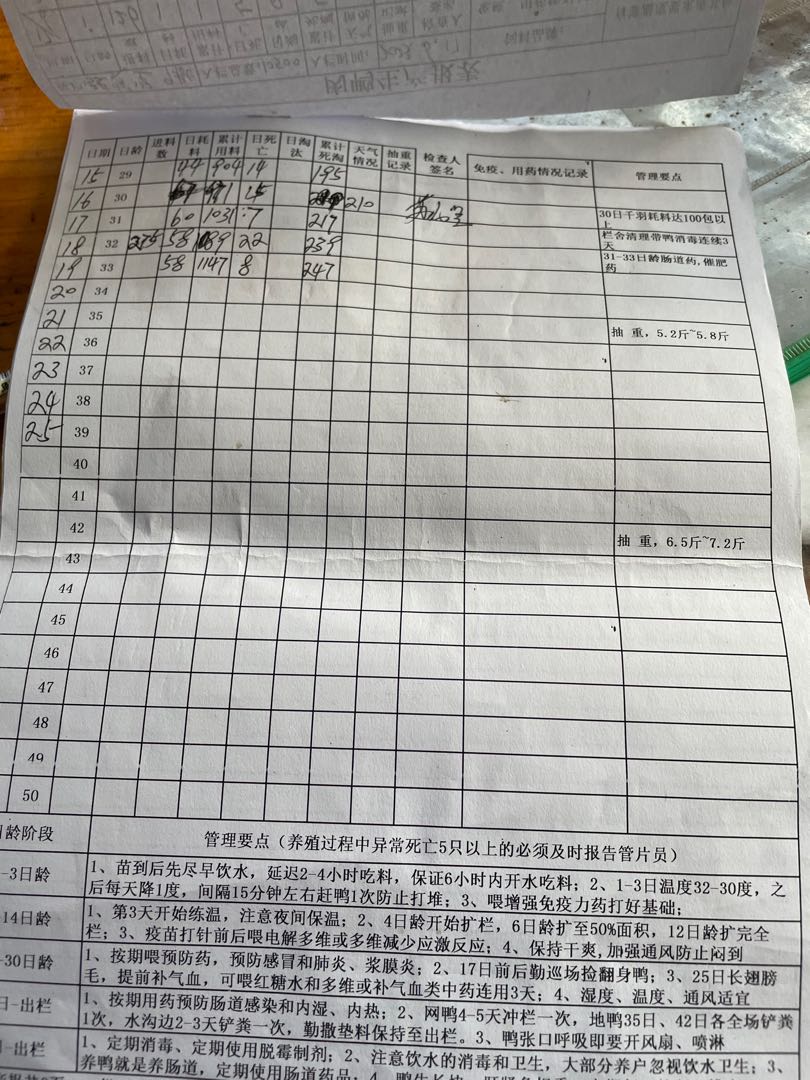 日期 日龄 进料数 日耗料 累计用料 日死亡 日淘汰 累计死淘 天气情况 抽重记录 检查人签名 免疫、用药情况记录 管理要点
15 29 44 904 14 195
16 30 15 210
17 31 60 1031 7 217 30日千羽耗料达100包以上
18 32 275 58 1089 22 239 栏舍清理带鸭消毒连续3天
19 33 58 1147 8 247 31-33日龄肠道药,催肥药
20 34
21 35 抽 重, 5.2斤~5.8斤
22 36
23 37
24 38
25 39
40
41
42 抽 重, 6.5斤~7.2斤
43
44
45
46
47
48
49
50
日龄阶段 管理要点(养殖过程中异常死亡5只以上的必须及时报告管片员)
-3日龄 1、苗到后先尽早饮水,延迟2-4小时吃料,保证6小时内开水吃料;2、1-3日温度32-30度,之
后每天降1度,间隔15分钟左右赶鸭1次防止打堆;3、喂增强免疫力药打好基础;
-14日龄 1、第3天开始练温,注意夜间保温;2、4日龄开始扩栏,6日龄扩至50%面积,12日龄扩完全
栏;3、疫苗打针前后喂电解多维或多维减少应激反应;4、保持干爽,加强通风防止闷到
-30日龄 1、按期喂预防药,预防感冒和肺炎、浆膜炎;2、17日前后勤巡场捡翻身鸭;3、25日长翅膀
毛,提前补气血,可喂红糖水和多维或补气血类中药连用3天;4、湿度、温度、通风适宜
日-出栏 1、按期用药预防肠道感染和内湿、内热;2、网鸭4-5天冲栏一次,地鸭35日、42日各全场铲粪
1次,水沟边2-3天铲粪一次,勤撒垫料保持至出栏。3、鸭张口呼吸即要开风扇、喷淋
-出栏 1、定期消毒、定期使用脱霉制剂;2、注意饮水的消毒和卫生,大部分养户忽视饮水卫生;3、
养鸭就是养肠道,定期使用肠道药品;4、